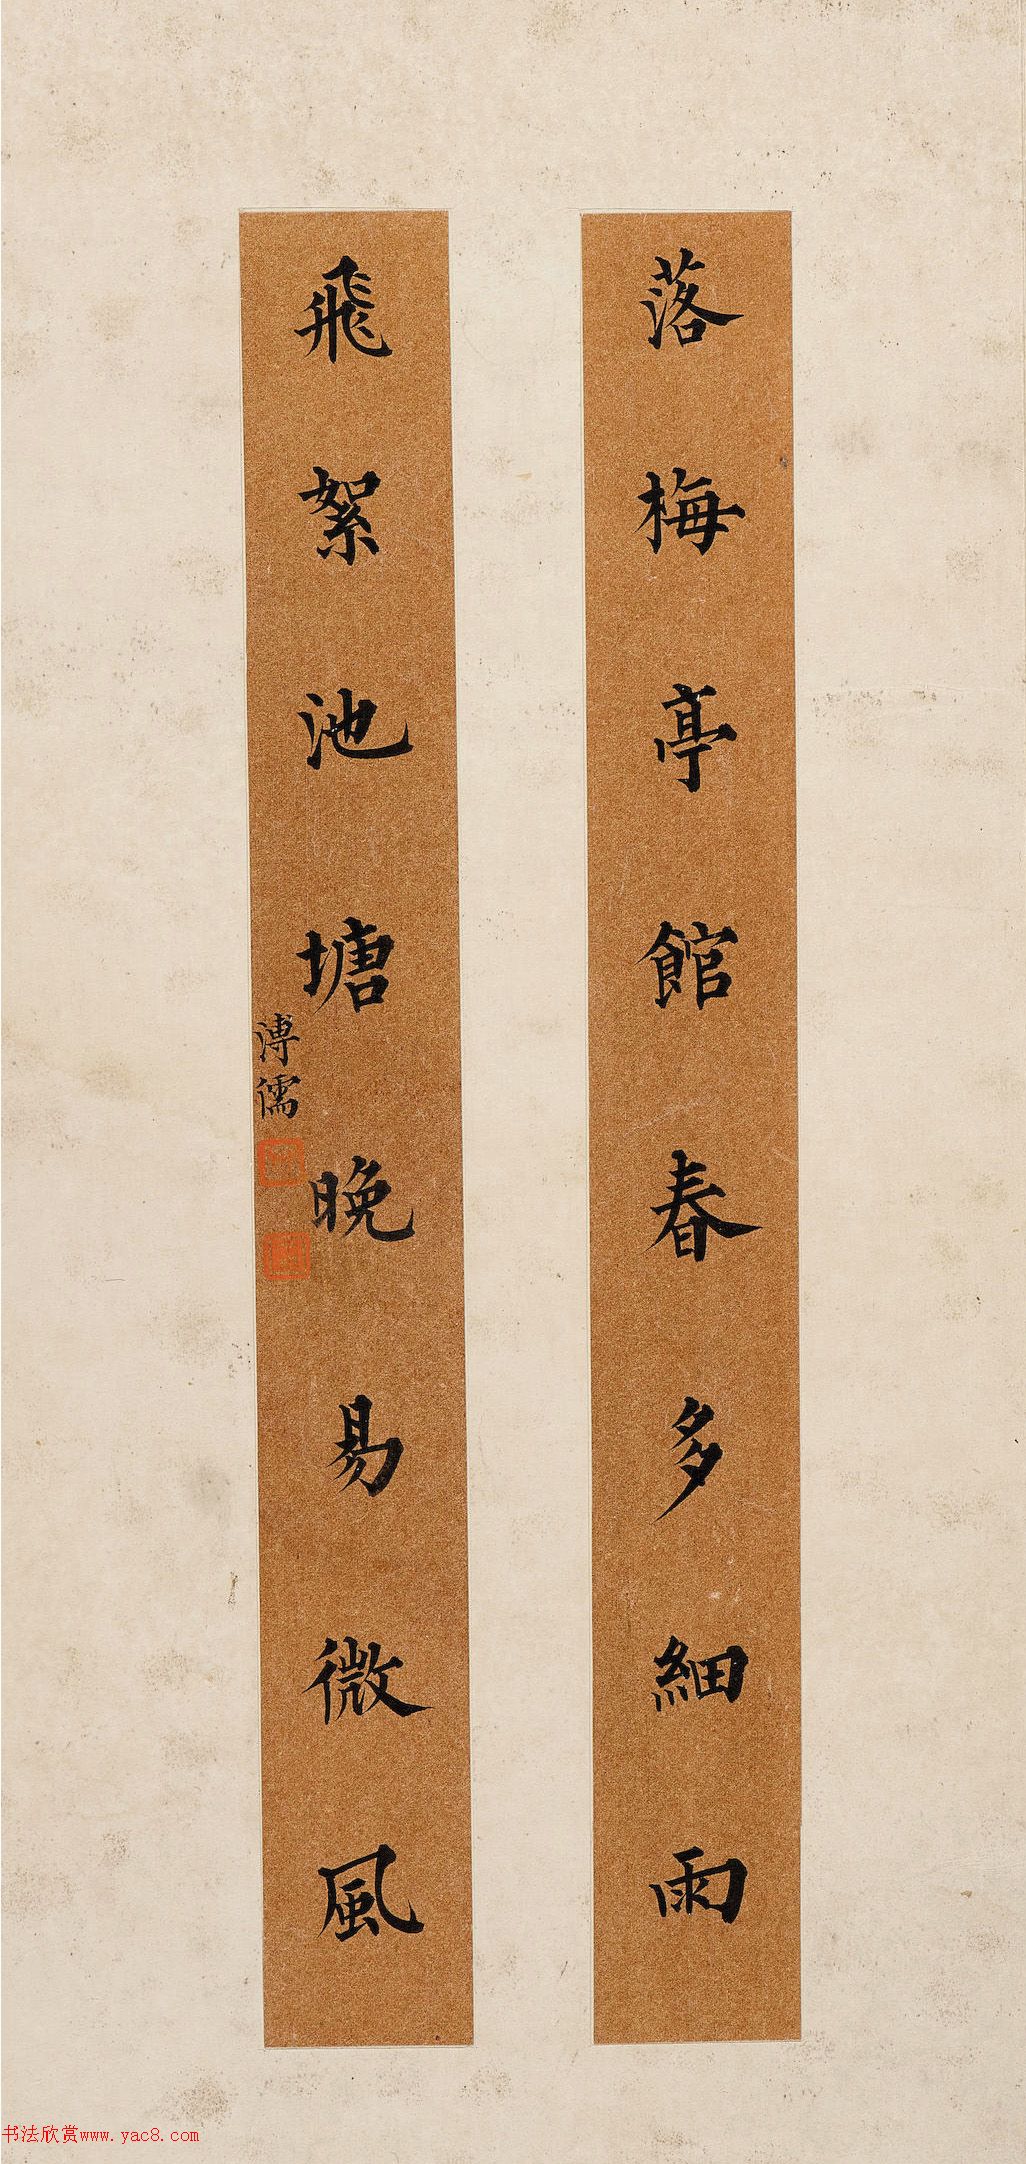 落梅亭館春多細雨
飛絮池塘晚易微風
溥儒
书法欣赏www.yac8.com